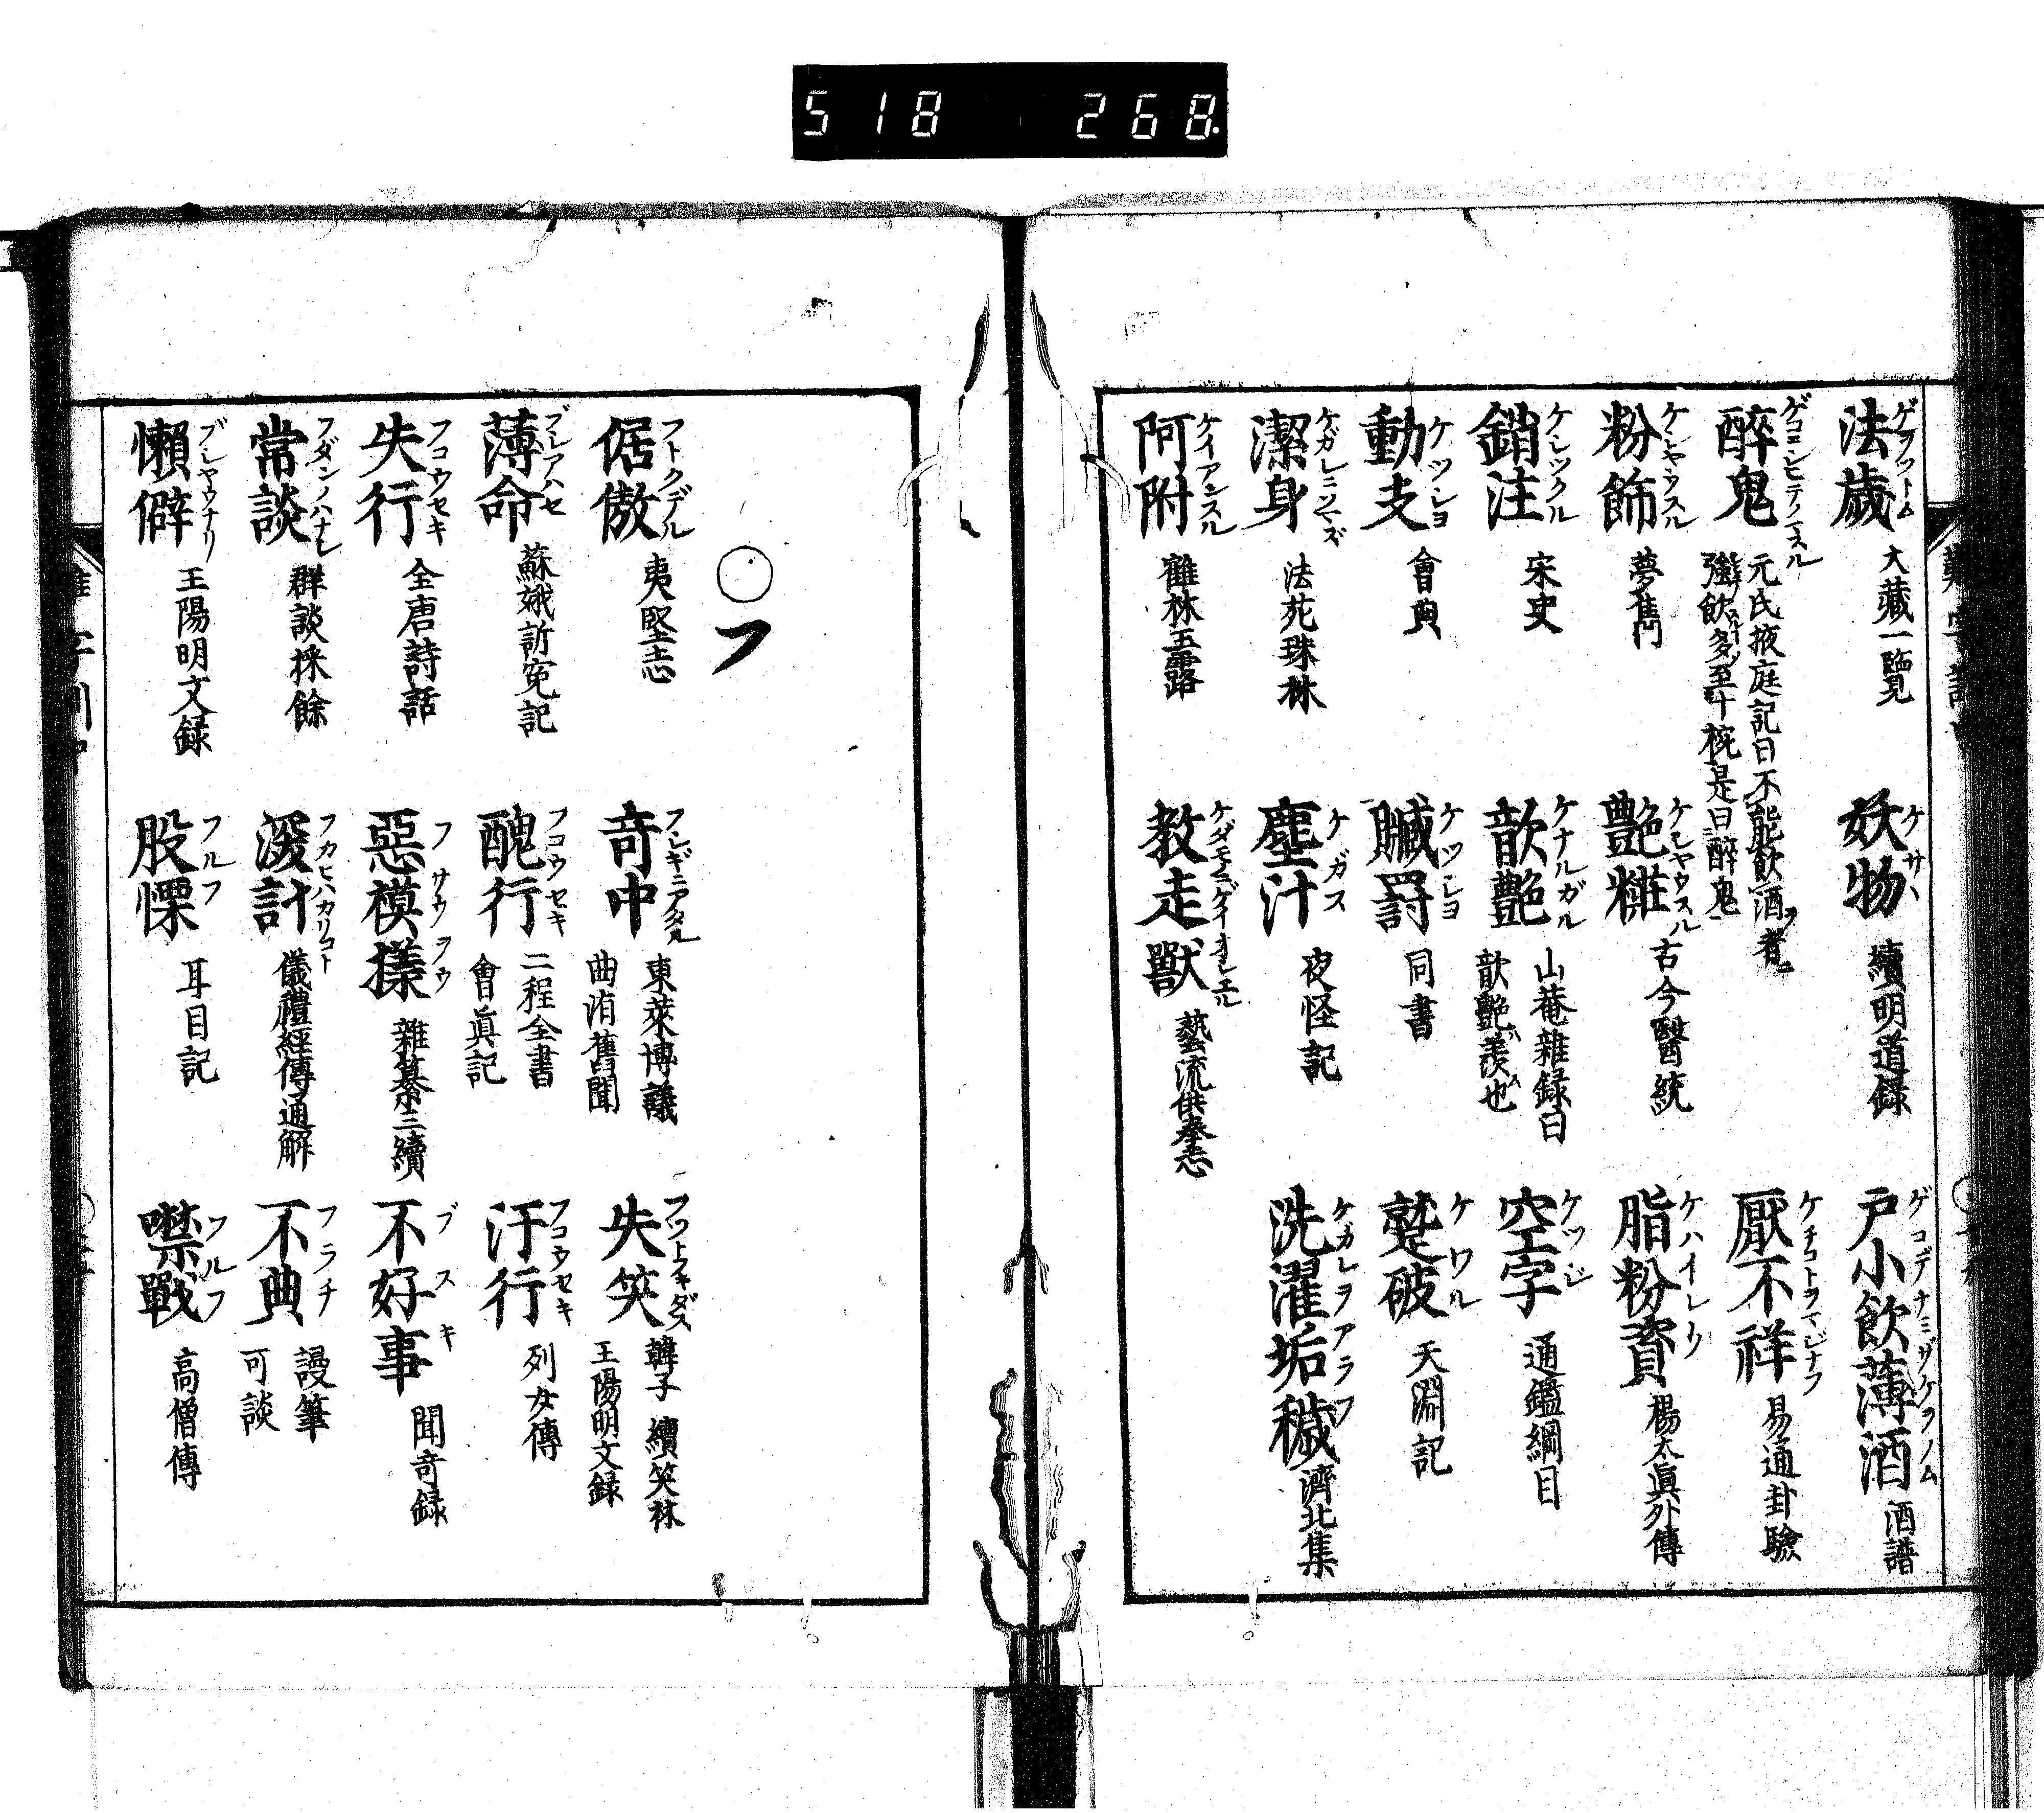 518 268
法歲 ゲフットム 大藏一覽
妖物 ケサハ 續明道録
戸小飲薄酒 ゲコデナミザケヲノム 酒譜
醉鬼 元氏掖庭記曰不能飲酒者強飲多至十椀是曰醉鬼
厭不祥 ケチコトヲマジナフ 易通卦驗
粉飾 ケシヤウスル 夢雋
艷糚 ケシヤウスル 古今醫統
脂粉資 ケハイレウ 楊太眞外傳
銷注 ケシツクル 宋史
歆艷 ケナルガル 山菴雜録曰歆艷ハ羨也
空字 ケツジ 通鑑綱目
動支 ケツシヨ 會典
贓罰 ケツシヨ 同書
蹵破 ケワル 天淵記
潔身 ケガレニソマズ 法苑珠林
塵汁 ケガス 夜怪記
洗濯垢穢 ケガレヲアラフ 濟北集
阿附 ケイアンスル 鶴林玉露
教走獸 ケダモノニゲイオシエル 藝流供奉志
○フ
倨傲 フトクデル 夷堅志
奇中 フシギニアタル 東萊博議 曲洧舊聞
失笑 フツトフキダス 韓子 續笑林 王陽明文録
薄命 ブシアハセ 蘇娥訴寃記
醜行 フコウセキ 二程全書 會眞記
汙行 フコウセキ 列女傳
失行 フコウセキ 全唐詩話
惡模㨾 フサウヲウ 雜纂三續
不好事 ブスキ 聞奇録
常談 フダンノハナシ 群談採餘
深計 フカヒハカリコト 儀禮經傳通解
不典 フラチ 謾筆 可談
懶僻 ブシヤウナリ 王陽明文録
股慄 フルフ 耳目記
噤戰 フルフ 高僧傳